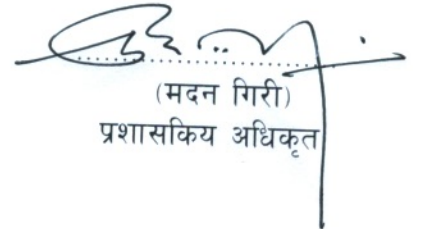 (मदन गिरी)
प्रशासकिय अधिकृत